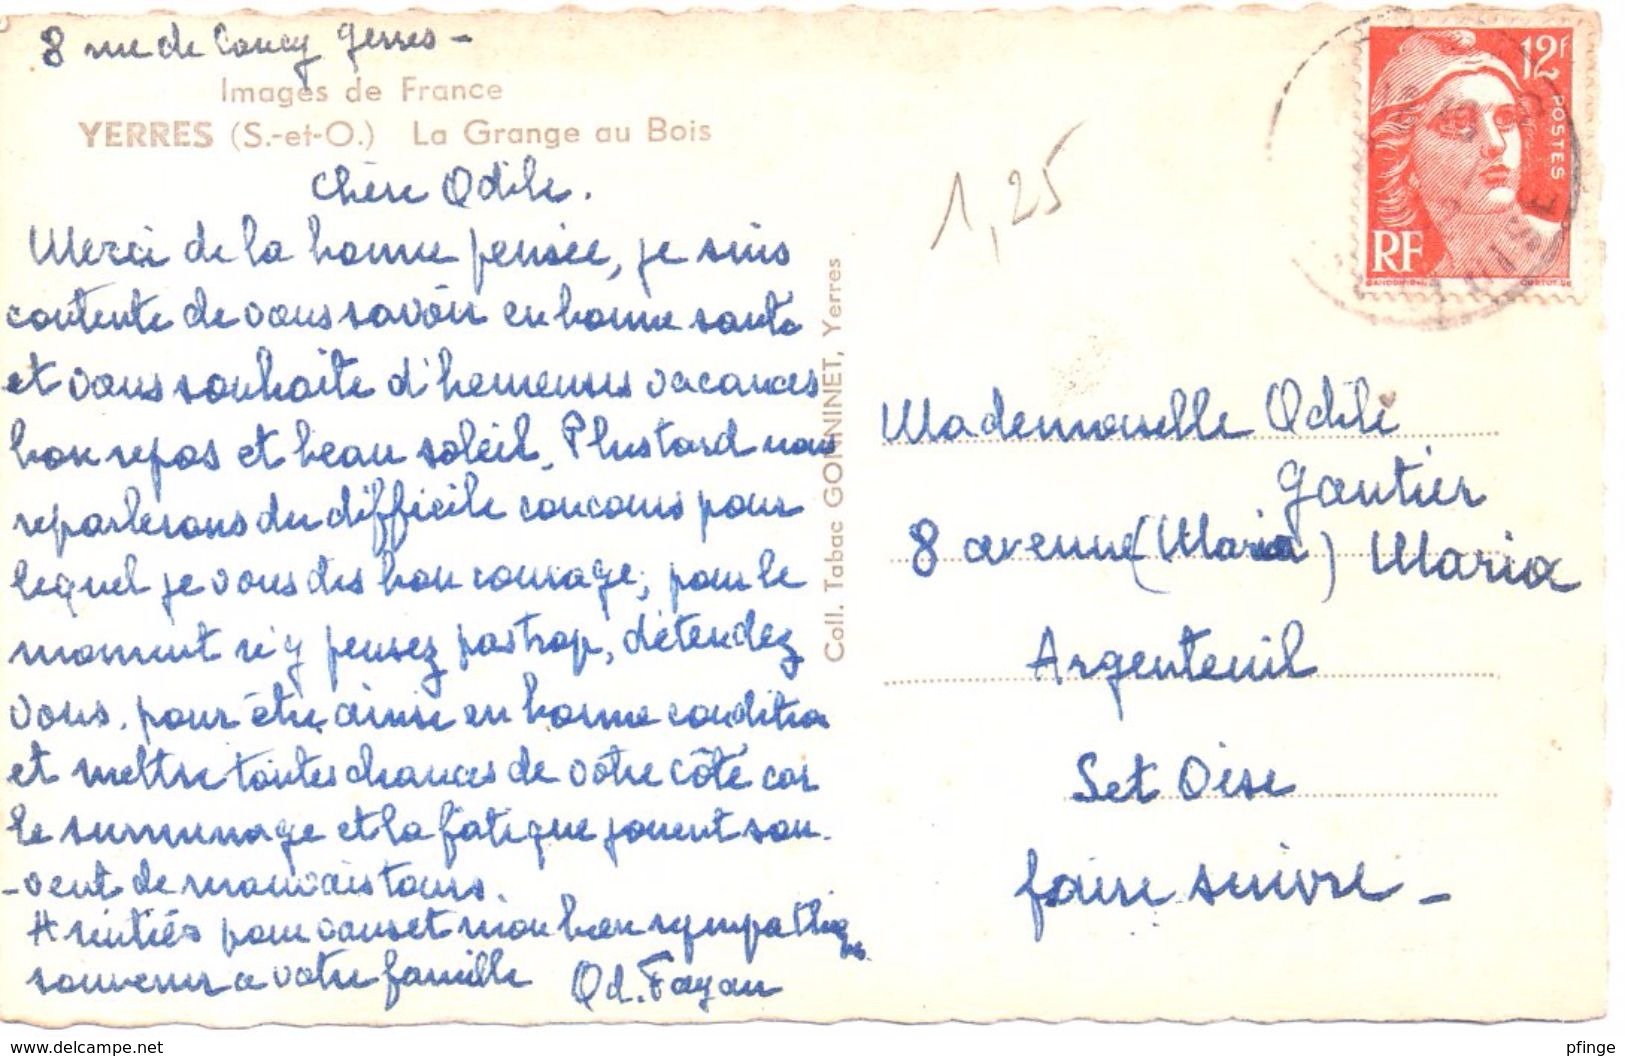 8 rue de Concy Yerres -
Images de France
YERRES (S.-et-O.) La Grange au Bois
Chère Odile.
Merci de la bonne pensée, je suis
contente de vous savoir en bonne santé
et vous souhaite d'heureuses vacances
bon repos et beau soleil. Plus tard nous
reparlerons du difficile concours pour
lequel je vous dis bon courage; pour le
moment n'y pensez pas trop, détendez
vous. pour être ainsi en bonne condition
et mettre toutes chances de votre côté car
le surmenage et la fatigue jouent sou-
-vent de mauvais tours.
Amitiés pour vous et mon bon sympathique
souvenir à votre famille Od. Fayau
Coll. Tabac GONNINET, Yerres
1,25
12F
POSTES
RF
GANDON
Mademoiselle Odile
Gautier
8 avenue (Maria) Maria
Argenteuil
S et Oise
faire suivre -
www.delcampe.net
pfinge